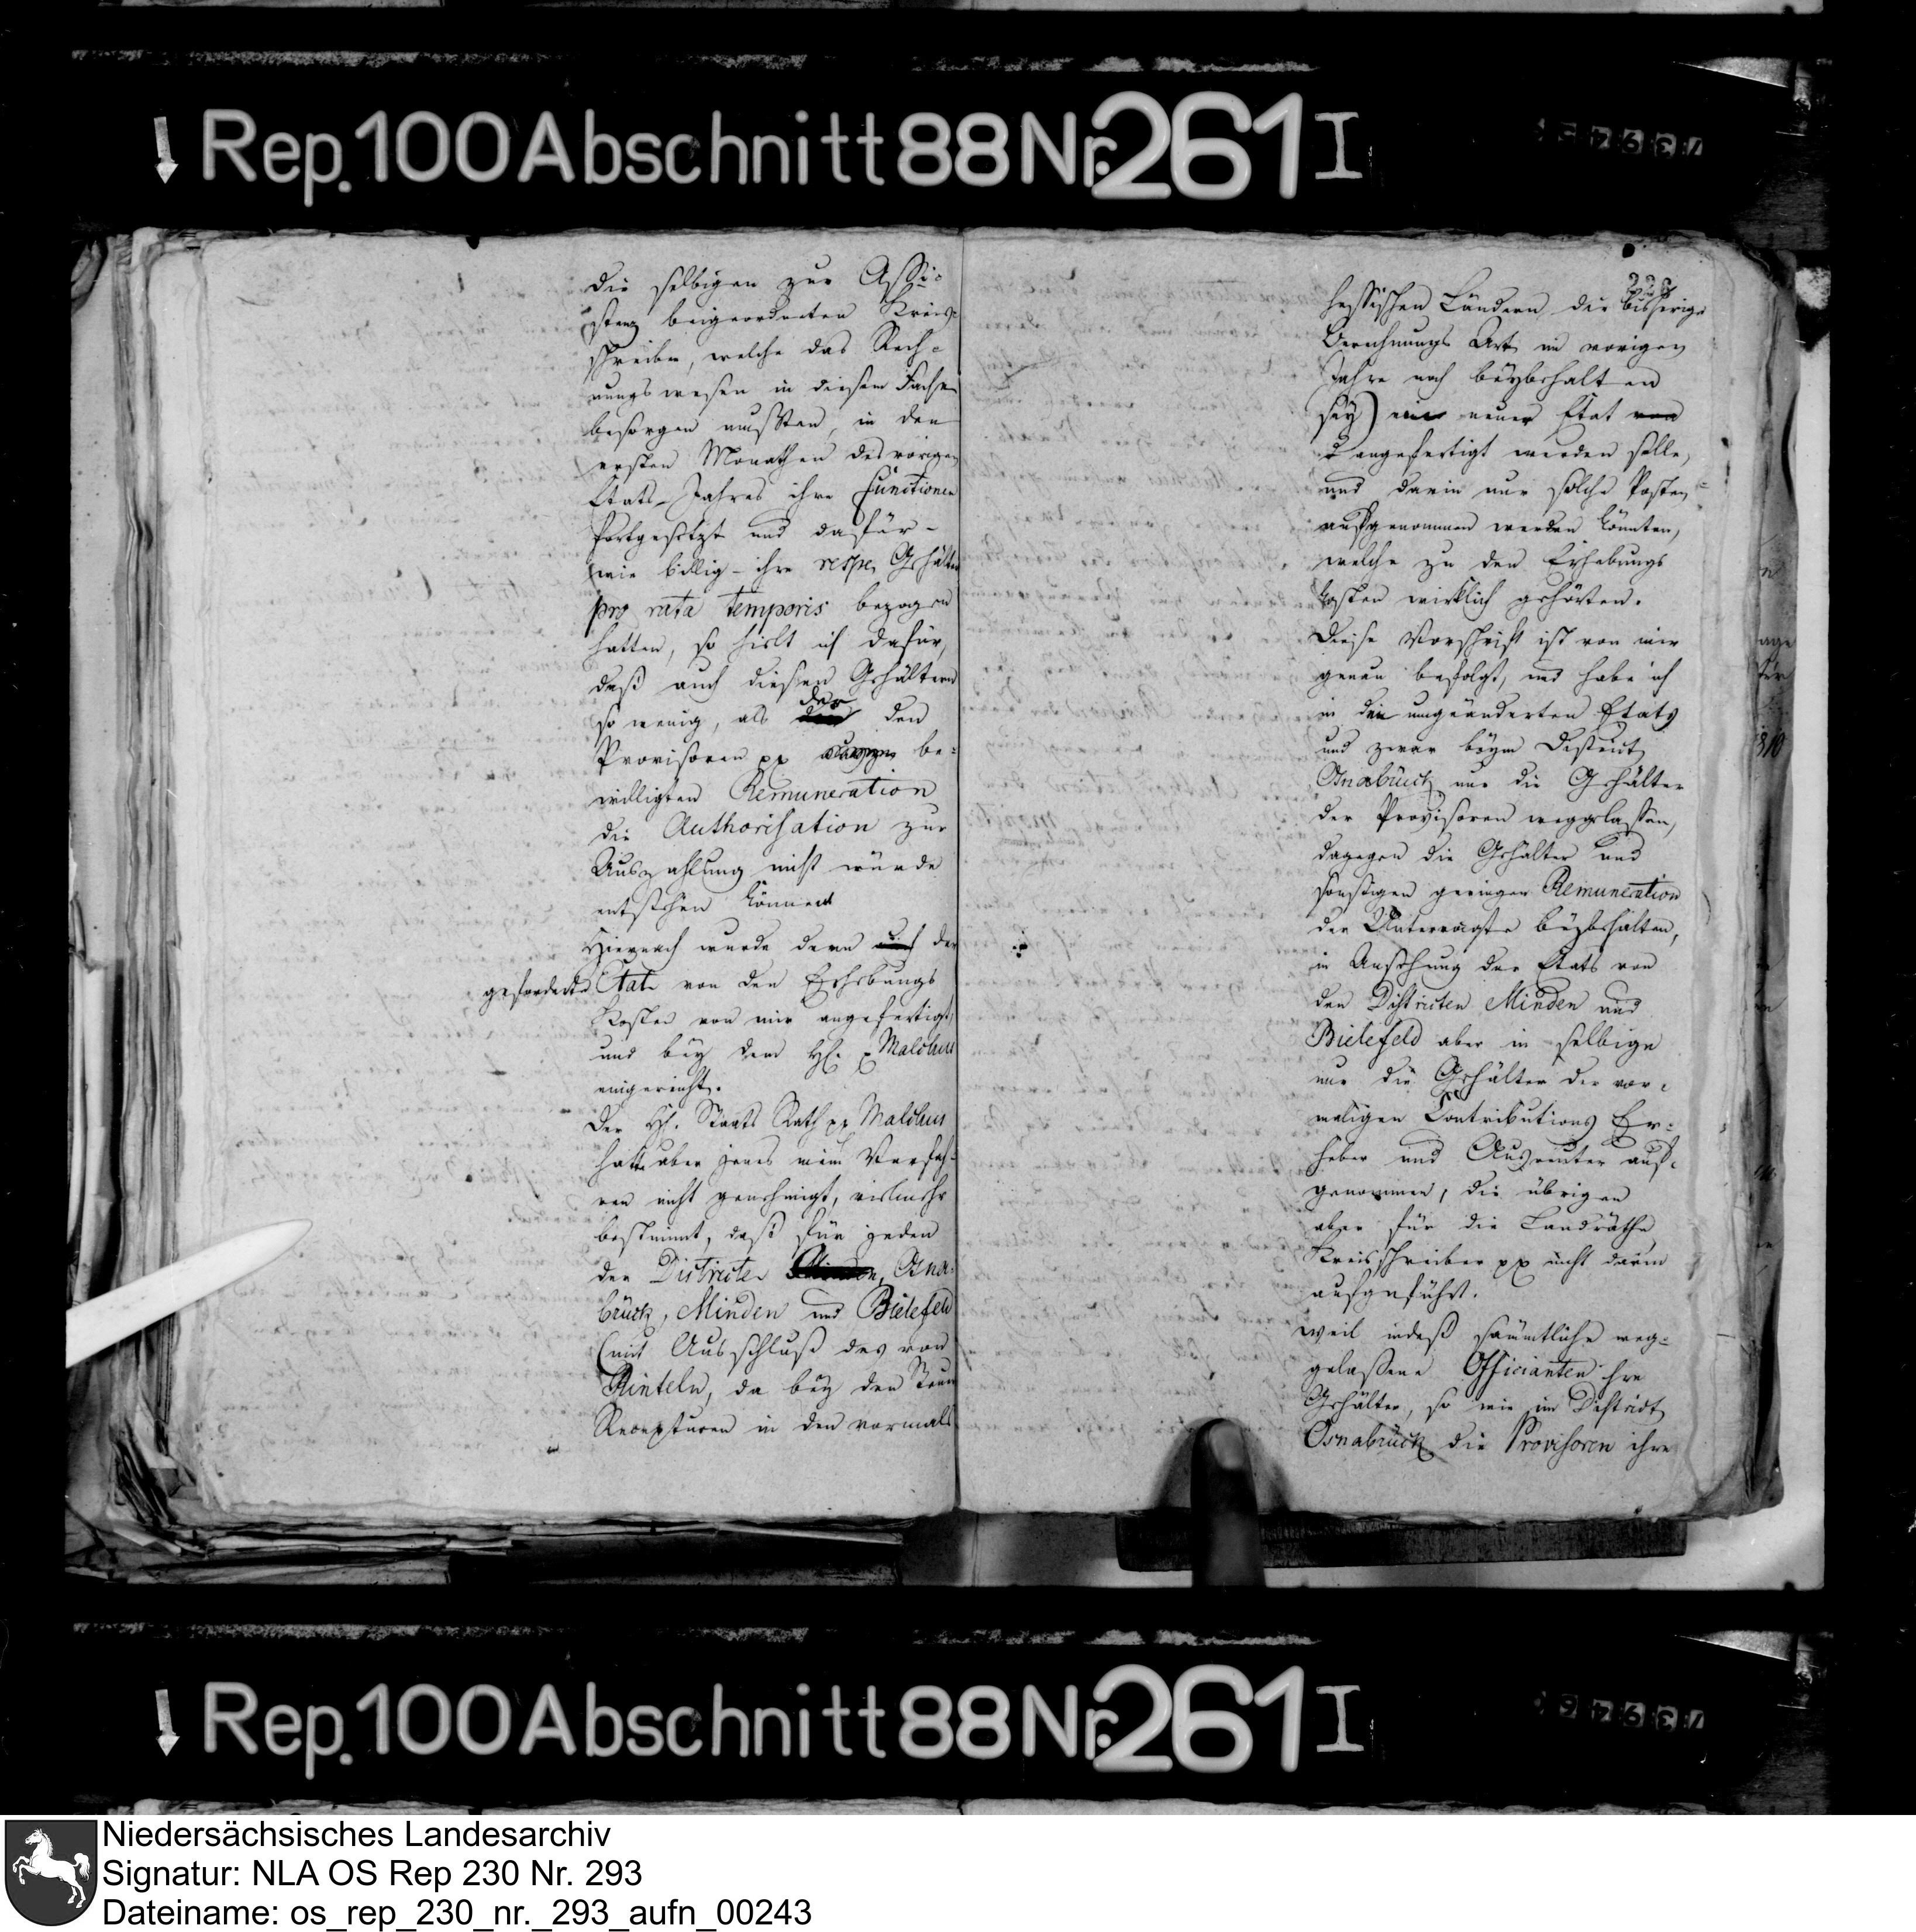 Rep. 100 Abschnitt 88 Nr. 261 I
die selbigen zur Assi-
stenz beigeordneten Kreis-
schreiber, welche das Rech-
nungswesen in diesem Fache
besorgen mußten, in den
ersten Monathen des vorigen
Etats-Jahres ihre Functionen
fortgesetzt und dafür -
wie billig - ihre resp. Gehälter
pro rata temporis bezogen
hatten, so hielt ich dafür,
daß auch diesen Gehältern
der
so wenig, als den
Provisoren pp be-
willigten Remuneration
die Authorisation zur
Auszahlung nicht würde
entstehen können
Hiernach wurde denn auch der
geforderte Etat von den Erhebungs
Kosten von mir angefertigt,
und bey dem H. p Malchus
eingereicht.
Der H. Staats Rath pp Malchus
hatte aber jenes mein Verfah-
ren nicht genehmigt, vielmehr
bestimmt, daß für jeden
der Districte Minden, Osna-
brück, Minden und Bielefeld
(mit Ausschluß des von
Rinteln, da bey den Steuer
Recepturen in den vormals
hessischen Ländern die bisherige
Berechnungs Art im vorigen
Jahre noch beybehalten
sey) neuer Etat
angefertigt werden solle,
und darin nur solche Posten
aufgenommen werden könnten,
welche zu den Erhebungs
kosten wirklich gehörten.
Diese Vorschrift ist von mir
genau befolgt, und habe ich
in die umgeänderten Etats
und zwar beym District
Osnabrück nur die Gehälter
der Provisoren weggelassen,
dagegen die Gehälter und
sonstigen geringen Remuneration
der Untervoigte beybehalten,
in Ansehung der Etats von
den Districten Minden und
Bielefeld aber in selbige
nur die Gehälter der vor-
maligen Contributions Er-
heber und Ausreuter auf-
genommen, die übrigen
aber für die Landräthe,
Kreisschreiber pp nicht darin
aufgeführt.
Weil indeß sämmtliche weg-
gelassene Officianten ihre
Gehälter, so wie im District
Osnabrück die Provisoren ihre
Rep. 100 Abschnitt 88 Nr. 261 I
Niedersächsisches Landesarchiv
Signatur: NLA OS Rep 230 Nr. 293
Dateiname: os_rep_230_nr._293_aufn_00243